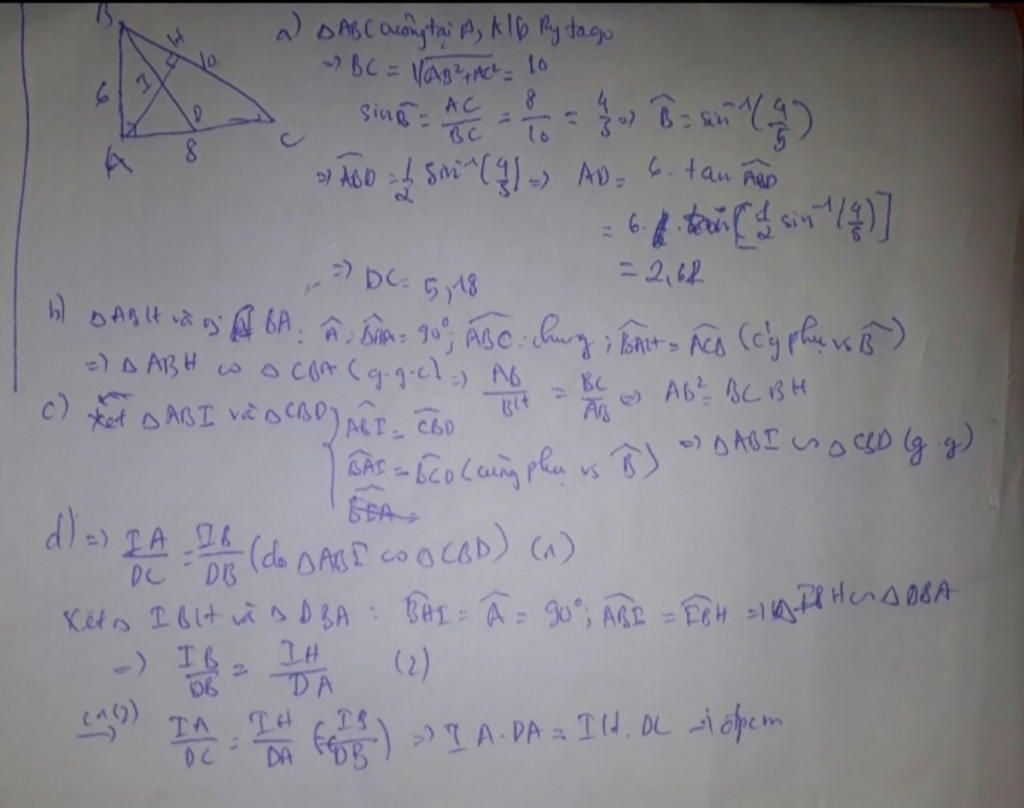 B
H
10
6
I
D
A
8
C
a) ΔABC vuông tại A, AD Pytago
=> BC = √(AB²+AC²) = 10
sin B̂ = AC/BC = 8/10 = 4/5 => B̂ = sin⁻¹(4/5)
=> ABD̂ = 1/2 sin⁻¹(4/5) => AD = 6. tan ABD̂
= 6. tan[1/2 sin⁻¹(4/5)]
=> DC = 5,18
b) ΔABH và BA: Â = BHÂ = 90°; ABĈ: chung; BAĤ = ACB̂ (cùng phụ vs B̂)
=> ΔABH ∽ ΔCBA (g.g.c) => AB/BH = BC/AB => AB² = BC BH
c) Xét ΔABI và ΔCBD { ABÎ = CBD̂
BAÎ = BCD̂ (cùng phụ vs B̂) => ΔABI ∽ ΔCBD (g.g)
d) => IA/DC = IB/DB (do ΔABI ∽ ΔCBD) (1)
Xét Δ IBH và Δ DBA: BHÎ = Â = 90°; ABÎ = IBĤ => ΔIBH ∽ ΔDBA
=> IB/DB = IH/DA (2)
(1)(2) => IA/DC = IH/DA (= IB/DB) => IA.DA = IH.DC => đpcm